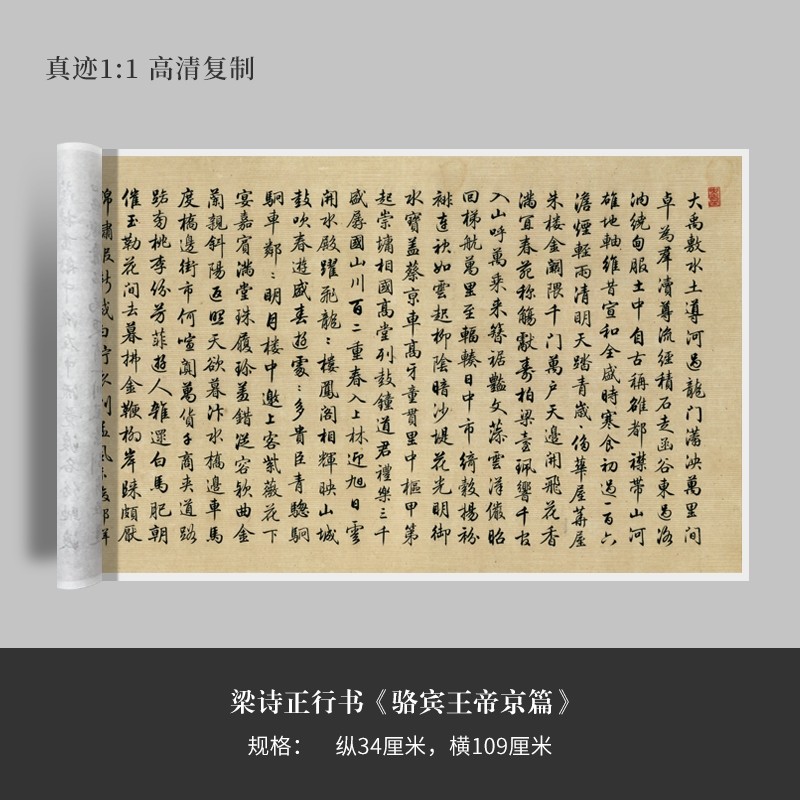 真迹1:1 高清复制
大禹敷水土導河過龍门瀠泱萬里间
卓為羣瀆尊流經積石走函谷東過洛
汭繞甸服土中自古稱雒都襟帶山河
雄地軸維昔宣和全盛時寒食初過一百六
澹煙輕雨清明天踏青歲侈華屋幕屋
朱楼金闕隈千门萬户天邊開飛花香
满宜春苑称觴獻壽柏梁臺珮響千官
入山呼萬乘来簪裾豔文藻雲洋儼昭
回梯航萬里至輻輳日中市綺縠揚袗
連袂如雲起柳陰暗沙堤花光明御
水寶盖蔡京車高牙童贯里中樞甲第
起崇墉相國高堂列鼓鐘道君禮樂三千
盛孱國山川百二重春入上林迎旭日雲
開水殿躍飛龍:楼鳳阁相輝映山城
鼓吹春遊盛春遊處:多貴臣青驄駉
駉車鄰:明月楼中邀上客紫薇花下
宴嘉賓满堂珠履珍羞錯從容欸曲金
蘭親斜陽返照天欲暮汴水橋邊車馬
度橋邊街市何喧闐萬貨子商夹道路
踮南桃李份芳菲遊人雜遝白馬肥朝
催玉勒花间去暮拂金鞭柳岸睐頗厭
梁诗正行书《骆宾王帝京篇》
规格： 纵34厘米，横109厘米